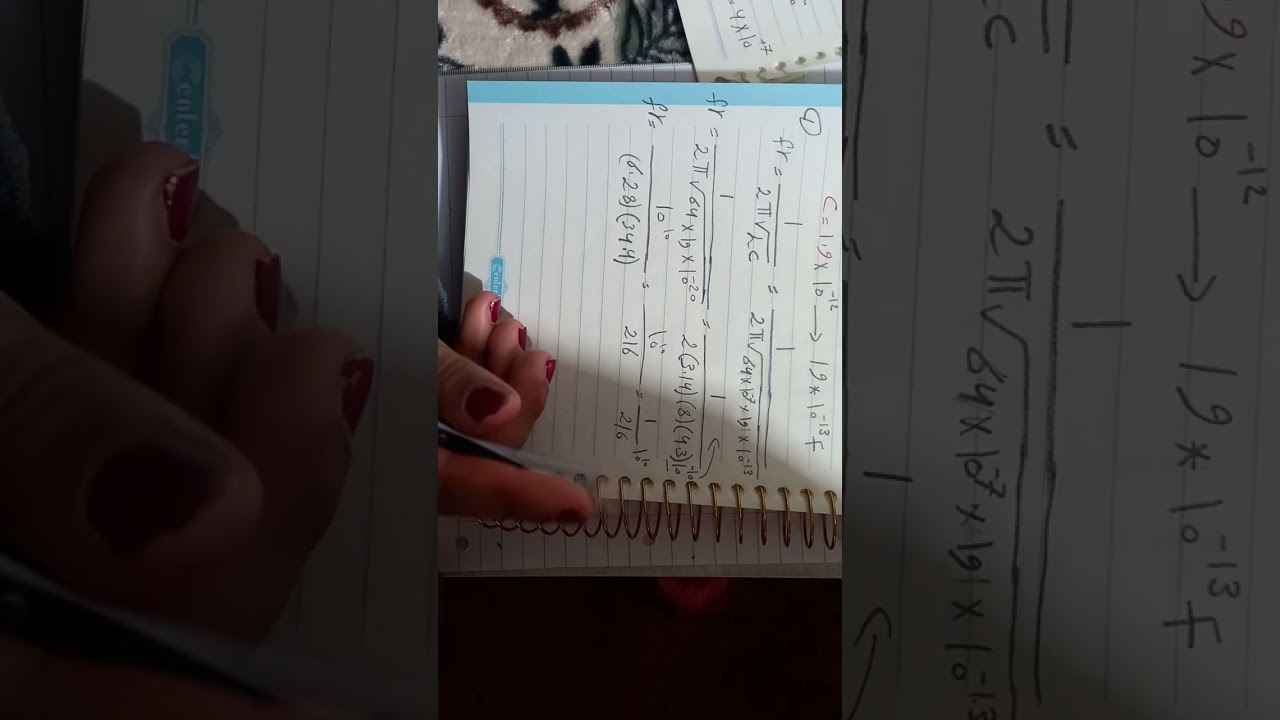 C = 1.9 x 10^-12 → 19 * 10^-13 F
① fr = 1 / 2π√LC = 1 / 2π√64 x 10^-7 x 19 x 10^-13
fr = 1 / 2π√64 x 19 x 10^-20 = 1 / 2(3.14)(8)(4.3)10^-10
fr = 10^10 / (6.28)(34.4) = 10^10 / 216 = 1 / 216 10^10